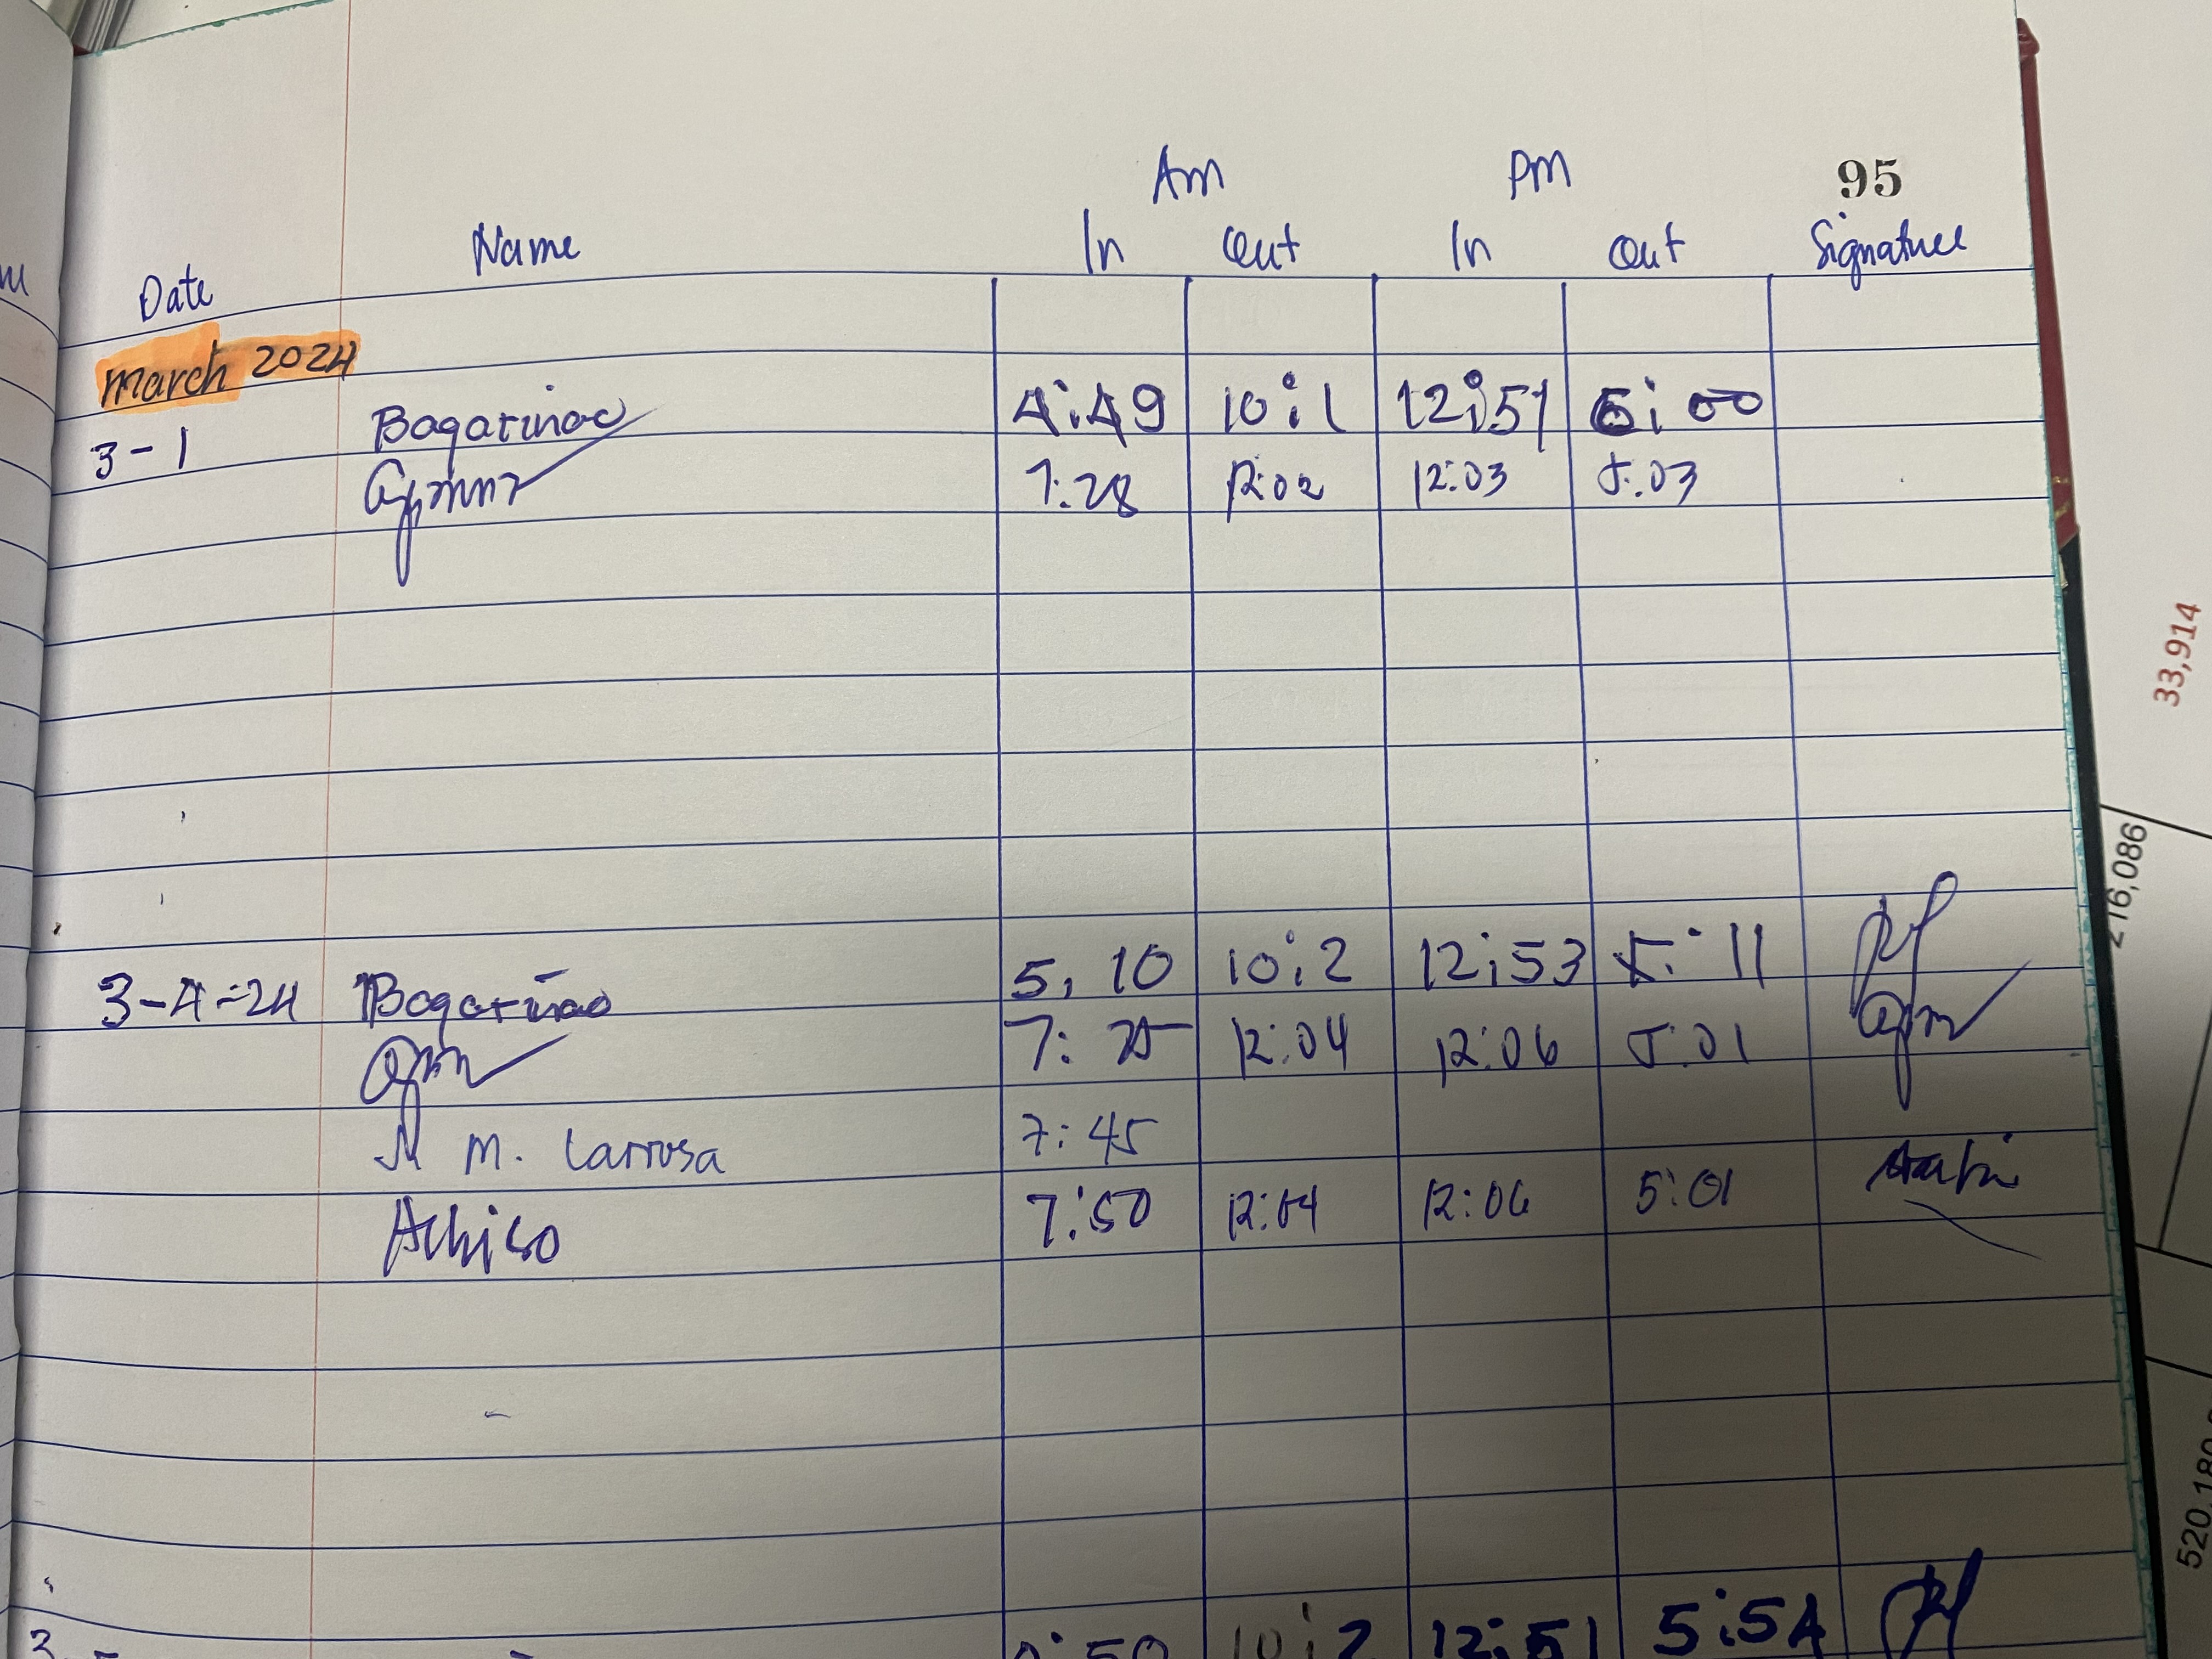 95
Am PM
Date Name In Out In Out Signature
March 2024
3-1 Bagariñao 4:49 10:1 12:51 5:00
7:28 12:02 12:03 5:03
3-4-24 Bagariñao 5:10 10:2 12:53 5:11
7:25 12:04 12:06 5:01
M. Larrosa 7:45
7:50 12:04 12:06 5:01
:50 10:2 12:51 5:54
33,914
216,086